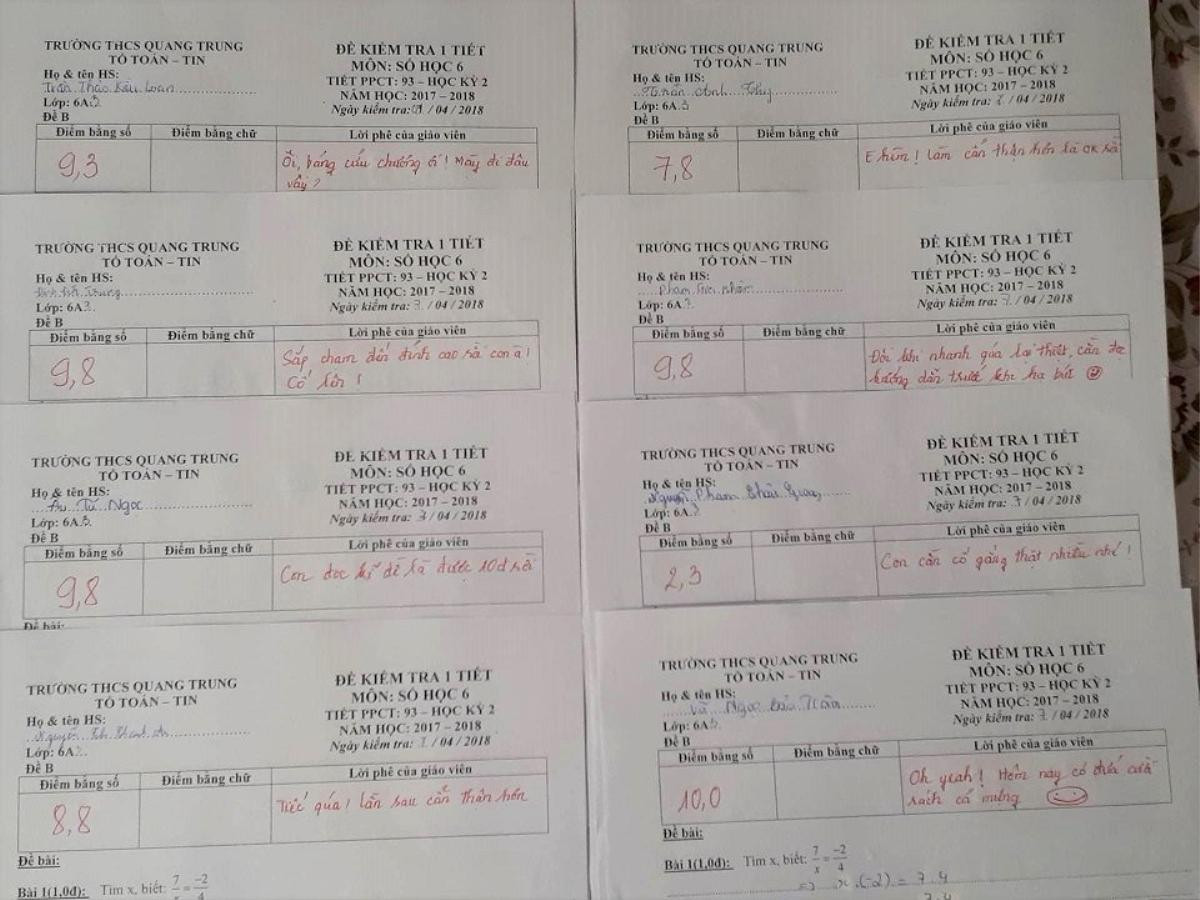 TRƯỜNG THCS QUANG TRUNG
TỔ TOÁN – TIN
Họ & tên HS:
Trần Thảo Loan
Lớp: 6A3
Đề B
ĐỀ KIỂM TRA 1 TIẾT
MÔN: SỐ HỌC 6
TIẾT PPCT: 93 – HỌC KỲ 2
NĂM HỌC: 2017 – 2018
Ngày kiểm tra: / 04 / 2018
Điểm bằng số Điểm bằng chữ Lời phê của giáo viên
9,3
Ôi, bảng cửu chương ơi! Mày đi đâu
vậy?
TRƯỜNG THCS QUANG TRUNG
TỔ TOÁN – TIN
Họ & tên HS:
Trần Anh Thy
Lớp: 6A3
Đề B
ĐỀ KIỂM TRA 1 TIẾT
MÔN: SỐ HỌC 6
TIẾT PPCT: 93 – HỌC KỲ 2
NĂM HỌC: 2017 – 2018
Ngày kiểm tra: 7 / 04 / 2018
Điểm bằng số Điểm bằng chữ Lời phê của giáo viên
7,8
E hèm! Làm cẩn thận hơn là ok rồi
TRƯỜNG THCS QUANG TRUNG
TỔ TOÁN – TIN
Họ & tên HS:
Trung
Lớp: 6A3
Đề B
ĐỀ KIỂM TRA 1 TIẾT
MÔN: SỐ HỌC 6
TIẾT PPCT: 93 – HỌC KỲ 2
NĂM HỌC: 2017 – 2018
Ngày kiểm tra: 7 / 04 / 2018
Điểm bằng số Điểm bằng chữ Lời phê của giáo viên
9,8
Sắp chạm đến đỉnh cao rồi con ạ!
Cố lên!
TRƯỜNG THCS QUANG TRUNG
TỔ TOÁN – TIN
Họ & tên HS:
Phạm
Lớp: 6A3
Đề B
ĐỀ KIỂM TRA 1 TIẾT
MÔN: SỐ HỌC 6
TIẾT PPCT: 93 – HỌC KỲ 2
NĂM HỌC: 2017 – 2018
Ngày kiểm tra: 7 / 04 / 2018
Điểm bằng số Điểm bằng chữ Lời phê của giáo viên
9,8
Đôi khi nhanh quá lại thiệt, cần đọc
hướng dẫn trước khi hạ bút
TRƯỜNG THCS QUANG TRUNG
TỔ TOÁN – TIN
Họ & tên HS:
Tú Ngọc
Lớp: 6A3
Đề B
ĐỀ KIỂM TRA 1 TIẾT
MÔN: SỐ HỌC 6
TIẾT PPCT: 93 – HỌC KỲ 2
NĂM HỌC: 2017 – 2018
Ngày kiểm tra: 7 / 04 / 2018
Điểm bằng số Điểm bằng chữ Lời phê của giáo viên
9,8
Con đọc kĩ đề là được 10đ rồi
Đề bài:
TRƯỜNG THCS QUANG TRUNG
TỔ TOÁN – TIN
Họ & tên HS:
Nguyễn Phạm
Lớp: 6A3
Đề B
ĐỀ KIỂM TRA 1 TIẾT
MÔN: SỐ HỌC 6
TIẾT PPCT: 93 – HỌC KỲ 2
NĂM HỌC: 2017 – 2018
Ngày kiểm tra: 7 / 04 / 2018
Điểm bằng số Điểm bằng chữ Lời phê của giáo viên
2,3
Con cần cố gắng thật nhiều nhé!
TRƯỜNG THCS QUANG TRUNG
TỔ TOÁN – TIN
Họ & tên HS:
Nguyễn
Lớp: 6A3
Đề B
ĐỀ KIỂM TRA 1 TIẾT
MÔN: SỐ HỌC 6
TIẾT PPCT: 93 – HỌC KỲ 2
NĂM HỌC: 2017 – 2018
Ngày kiểm tra: 7 / 04 / 2018
Điểm bằng số Điểm bằng chữ Lời phê của giáo viên
8,8
Tiếc quá! lần sau cẩn thận hơn
Đề bài:
Bài 1(1,0đ): Tìm x, biết: 7/x = -2/4
TRƯỜNG THCS QUANG TRUNG
TỔ TOÁN – TIN
Họ & tên HS:
Vũ Ngọc Bảo Trân
Lớp: 6A3
Đề B
ĐỀ KIỂM TRA 1 TIẾT
MÔN: SỐ HỌC 6
TIẾT PPCT: 93 – HỌC KỲ 2
NĂM HỌC: 2017 – 2018
Ngày kiểm tra: 7 / 04 / 2018
Điểm bằng số Điểm bằng chữ Lời phê của giáo viên
10,0
Oh yeah! Hôm nay có đứa cười
rách cả miệng
Đề bài:
Bài 1(1,0đ): Tìm x, biết: 7/x = -2/4
=> x.(-2) = 7.4
7.4